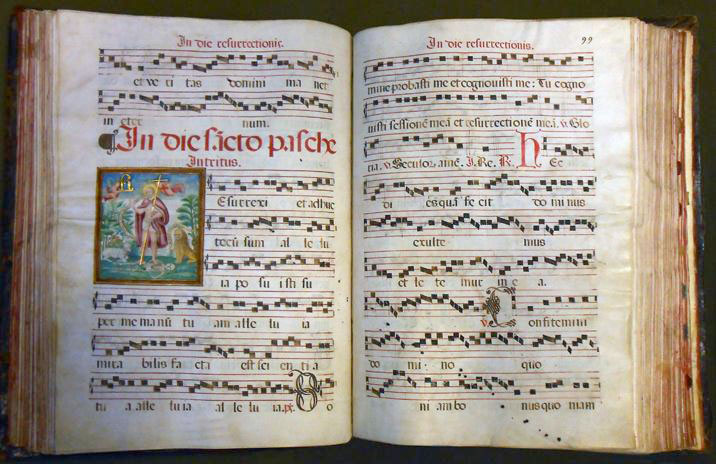 In die resurrectionis.
et ve ri tas domini ma net
in eter num.
In die sãcto pasche
Intritus.
R
Esurrexi et adhuc
tecũ sum al le lu
ia po su i sti su
per me manũ tu am alle lu ia
mira bilis fa cta est sci en ti a
tu a alle lu ia al le lu ia. ps. D o
In die resurrectionis. 99
mine probasti me et cognouisti me: Tu cogno
uisti sessionẽ meã et resurrectionẽ meã. v. Glo
ria. v. Seculoꝝ. amẽ. I. Re. R. h Ec
di es quã fe cit do mi nus
exulte mus
et le te mur in e a.
v. C onfitemini
do mi no quo
ni am bo nus quo niam